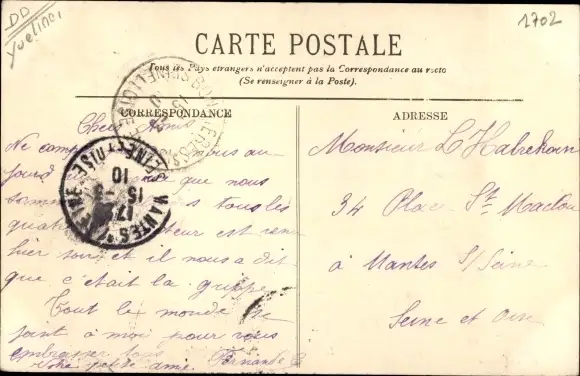 DD
Yvelines
1702
CARTE POSTALE
Tous les Pays étrangers n'acceptent pas la Correspondance au recto
(Se renseigner à la Poste).
CORRESPONDANCE
Chers Amis
Ne comp vous au
jourd que nous
sommes s tous les
quatre teur est venu
hier soir et il nous a dit
que c'était la grippe
Tout le monde se
joint à moi pour vous
embrasser tous
votre petite amie Fernande
MANTES
SEINE ET OISE
17
15
10
ADRESSE
Monsieur L
34 Place St Maclou
à Mantes s/Seine
Seine et Oise